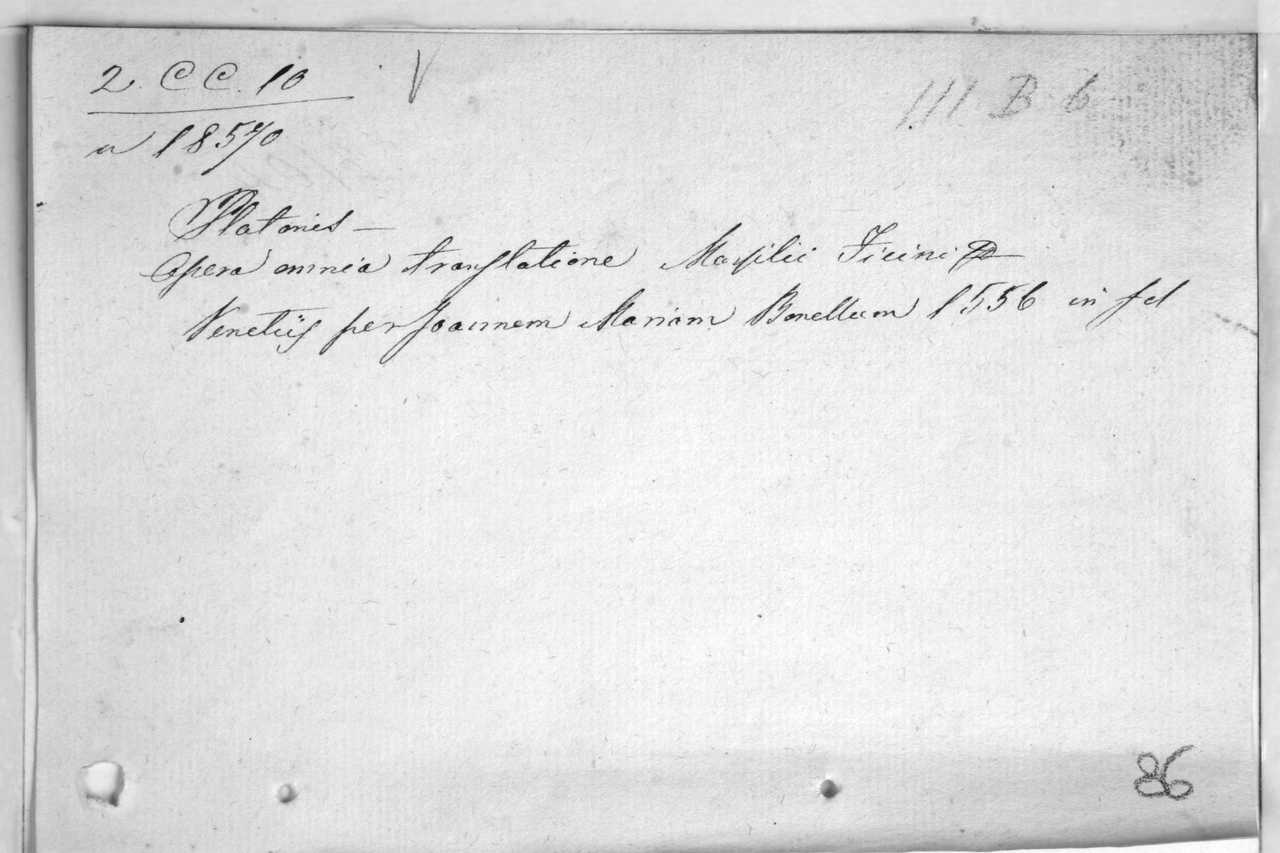 2. C C. 10 V III B 6
a 18570
Platonis —
Opera omnia translatione Marsilii Ficini
Venetiis per Joannem Mariam Bonellum 1556 in fol
86